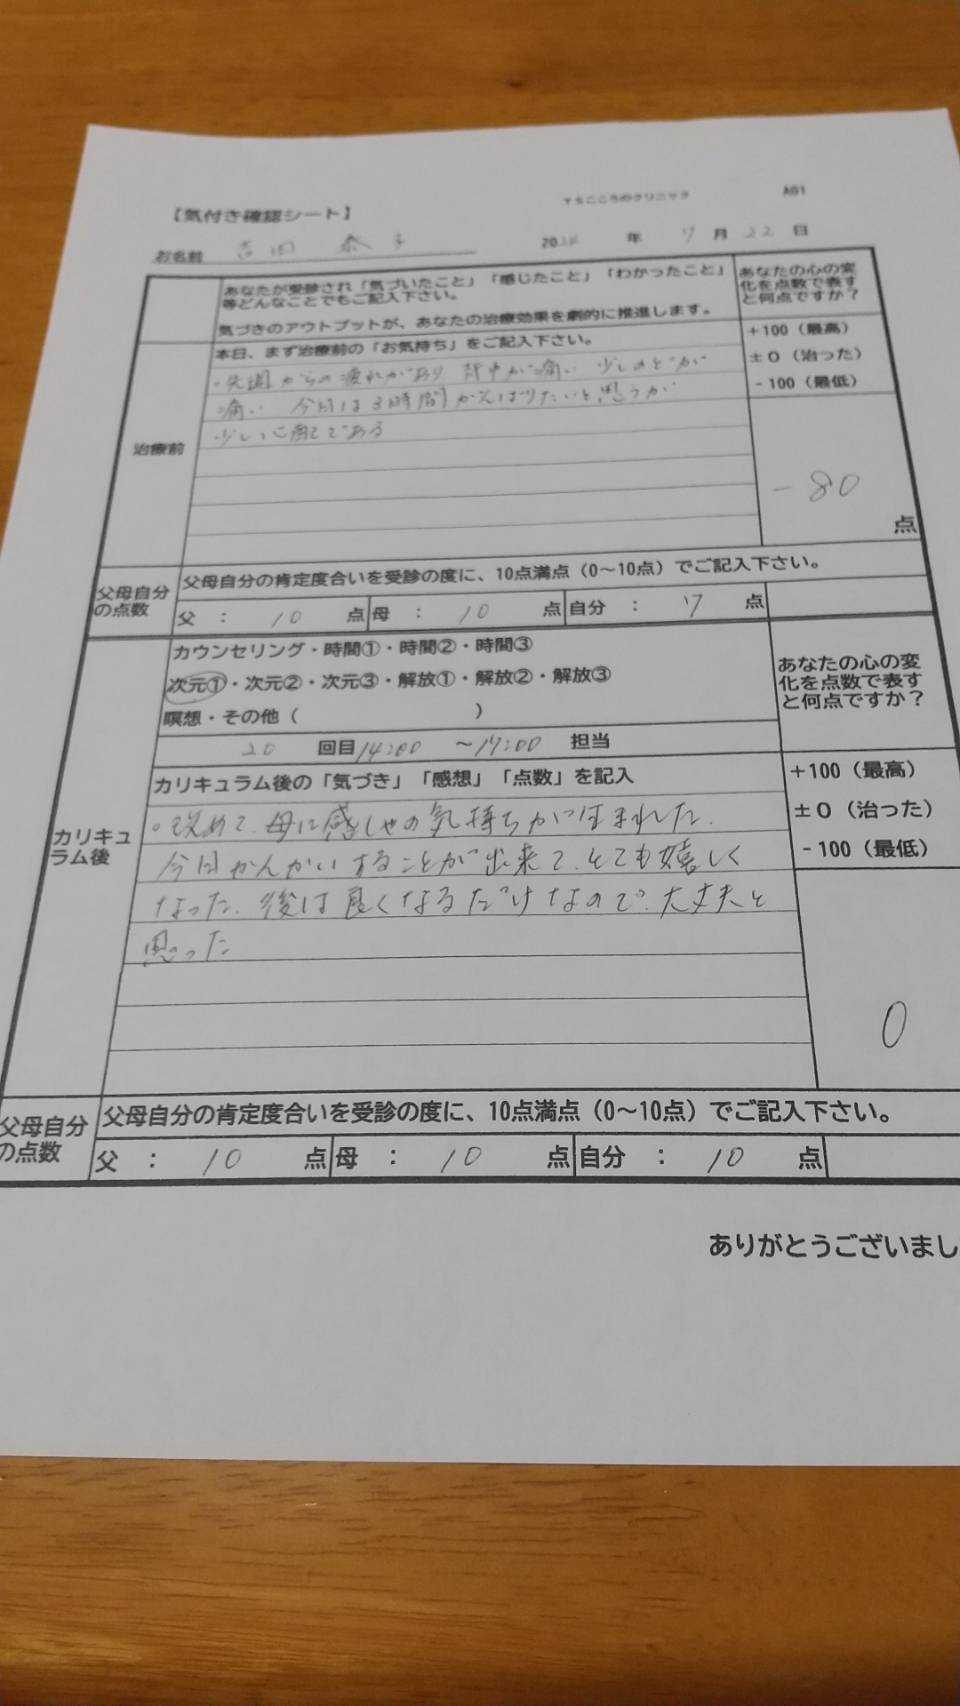 YSこころのクリニック A01
【気付き確認シート】
お名前 吉田 泰子 2024 年 7月 22日
あなたが受診され「気づいたこと」「感じたこと」「わかったこと」
等どんなことでもご記入下さい。
気づきのアウトプットが、あなたの治療効果を劇的に推進します。
あなたの心の変
化を点数で表す
と何点ですか？
治療前
本日、まず治療前の「お気持ち」をご記入下さい。
・先週からの疲れがあり 背中が痛い 少しのどが
痛い 今日は3時間がんばりたいと思うが
少し心配である
+100（最高）
±0（治った）
-100（最低）
-80
点
父母自分
の点数
父母自分の肯定度合いを受診の度に、10点満点（0～10点）でご記入下さい。
父 ： 10 点 母 ： 10 点 自分 ： 7 点
カリキュ
ラム後
カウンセリング・時間①・時間②・時間③
次元①・次元②・次元③・解放①・解放②・解放③
瞑想・その他（ ）
20 回目 14:00 ～17:00 担当
あなたの心の変
化を点数で表す
と何点ですか？
カリキュラム後の「気づき」「感想」「点数」を記入
。改めて、母に感しゃの気持ちがが生まれた。
今日かんかいすることが出来て、とても嬉しく
なった。後は良くなるだけなので、大丈夫と
思った
+100（最高）
±0（治った）
-100（最低）
0
父母自分
の点数
父母自分の肯定度合いを受診の度に、10点満点（0～10点）でご記入下さい。
父 ： 10 点 母 ： 10 点 自分 ： 10 点
ありがとうございまし